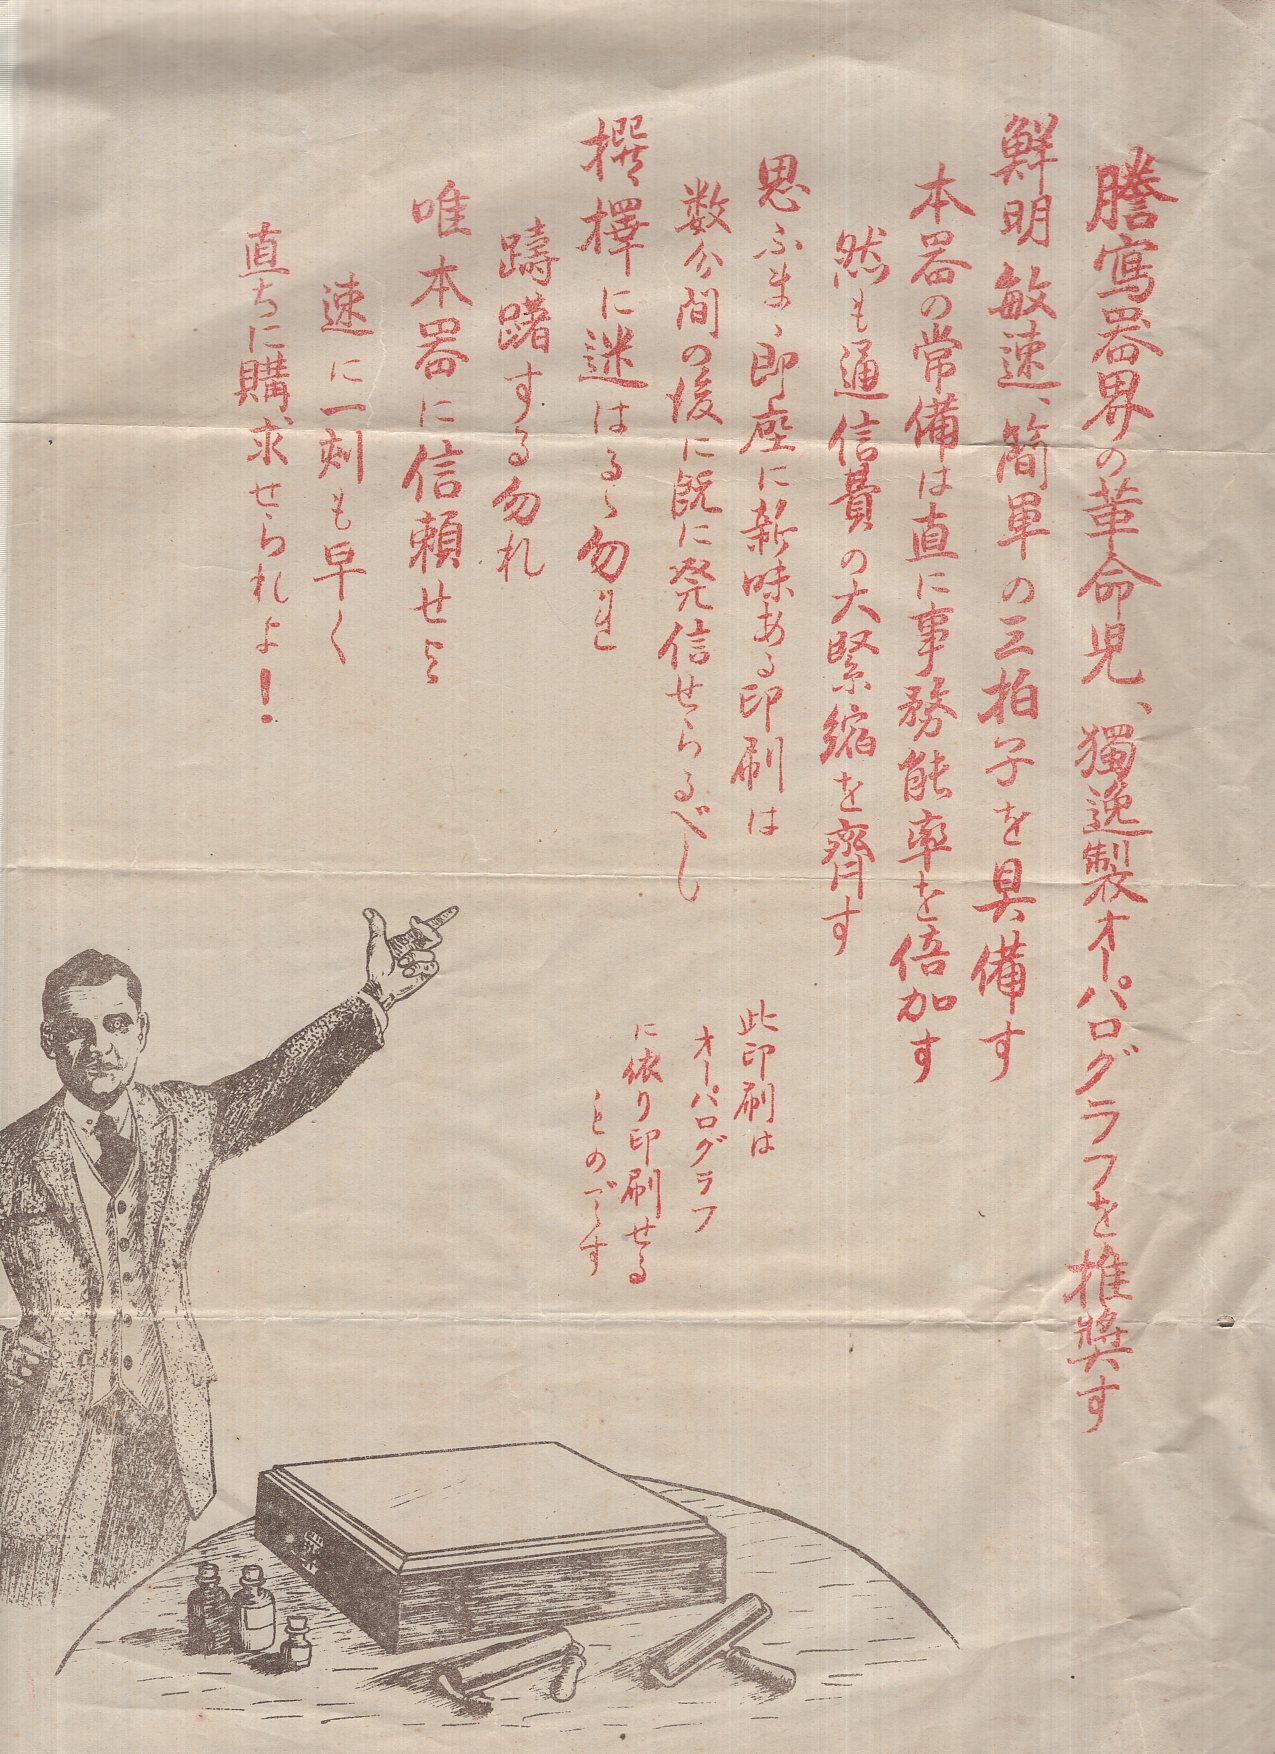 謄寫器界の革命児、獨逸製オーパログラフを推奨す
鮮明敏速、簡単の三拍子を具備す
本器の常備は直に事務能率を倍加す
然も通信費の大緊縮を齊す
思ふまゝ即座に新味ある印刷は
数分間の後に既に発信せらるべし
撰擇に迷はるゝ勿れ
躊躇する勿れ
唯本器に信頼せよ
速に一刻も早く
直ちに購求せられよ!
此印刷は
オーパログラフ
に依り印刷せる
ものです